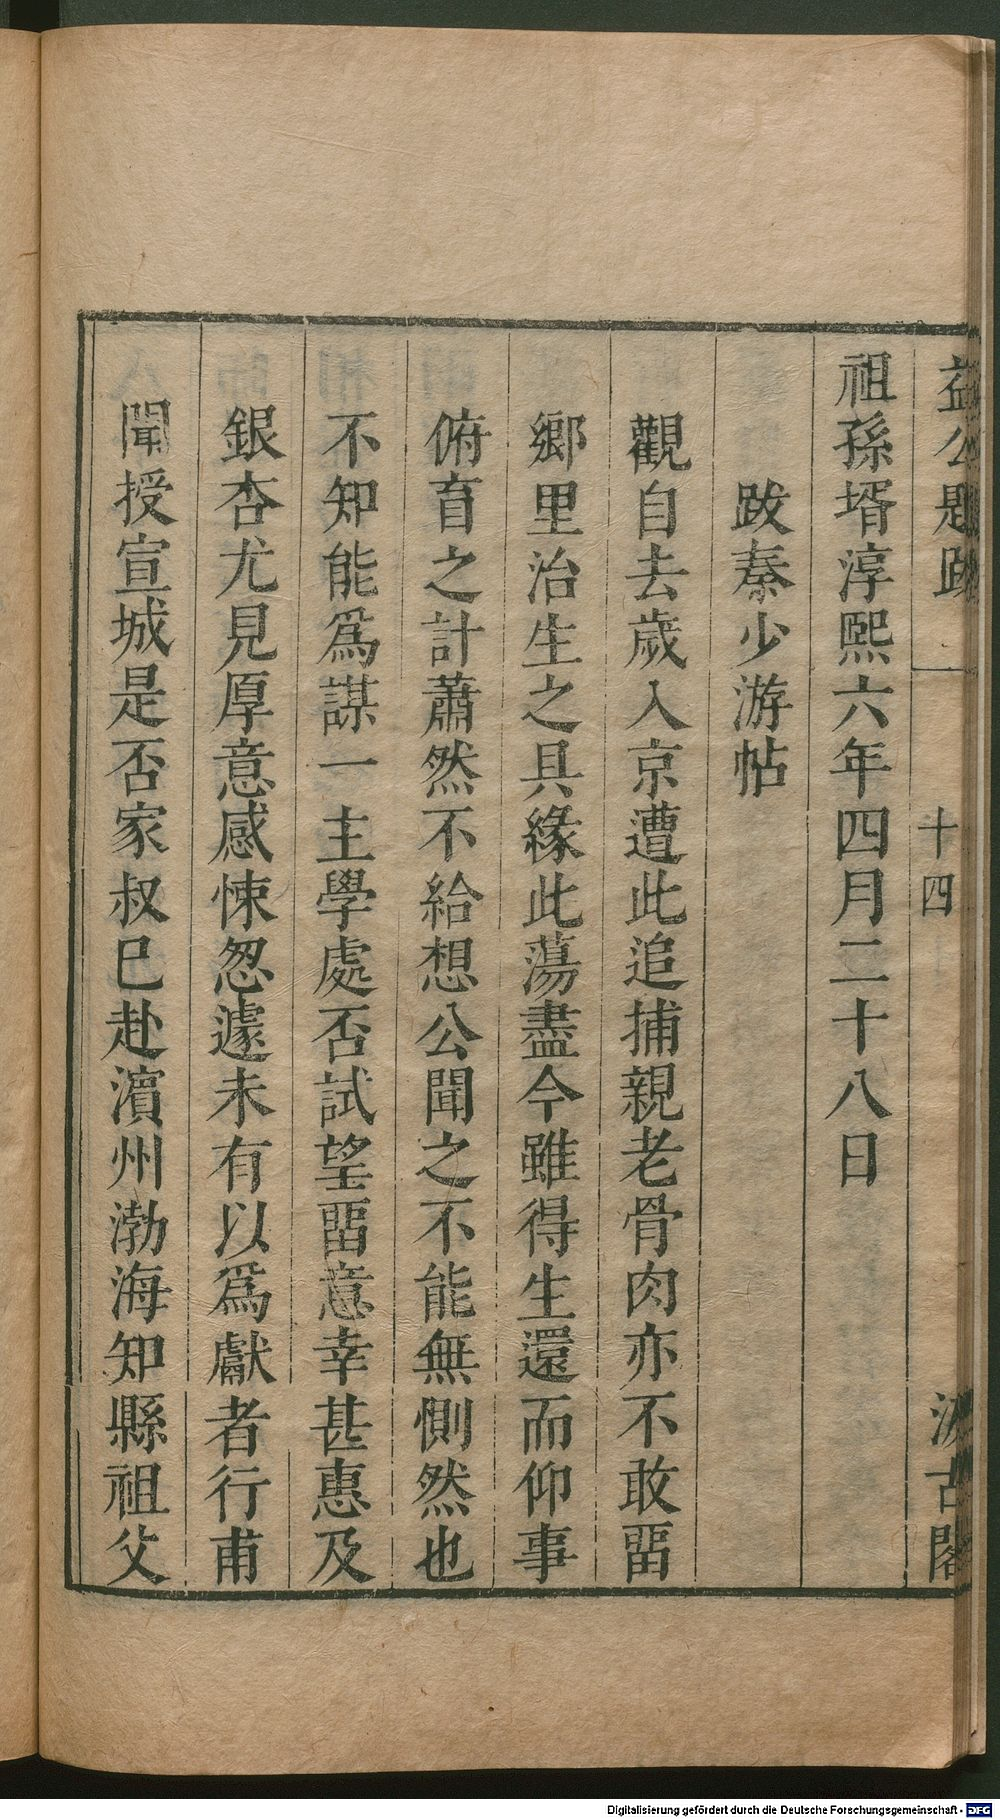 益公題跋
十四
汲古閣
祖孫壻淳熙六年四月二十八日
跋秦少游帖
觀自去歲入京遭此追捕親老骨肉亦不敢畱
鄉里治生之具緣此蕩盡今雖得生還而仰事
俯育之計蕭然不給想公聞之不能無惻然也
不知能爲謀一主學處否試望畱意幸甚惠及
銀杏尤見厚意感悚怱遽未有以爲獻者行甫
聞授宣城是否家叔巳赴濵州渤海知縣祖父
Digitalisierung gefördert durch die Deutsche Forschungsgemeinschaft - DFG